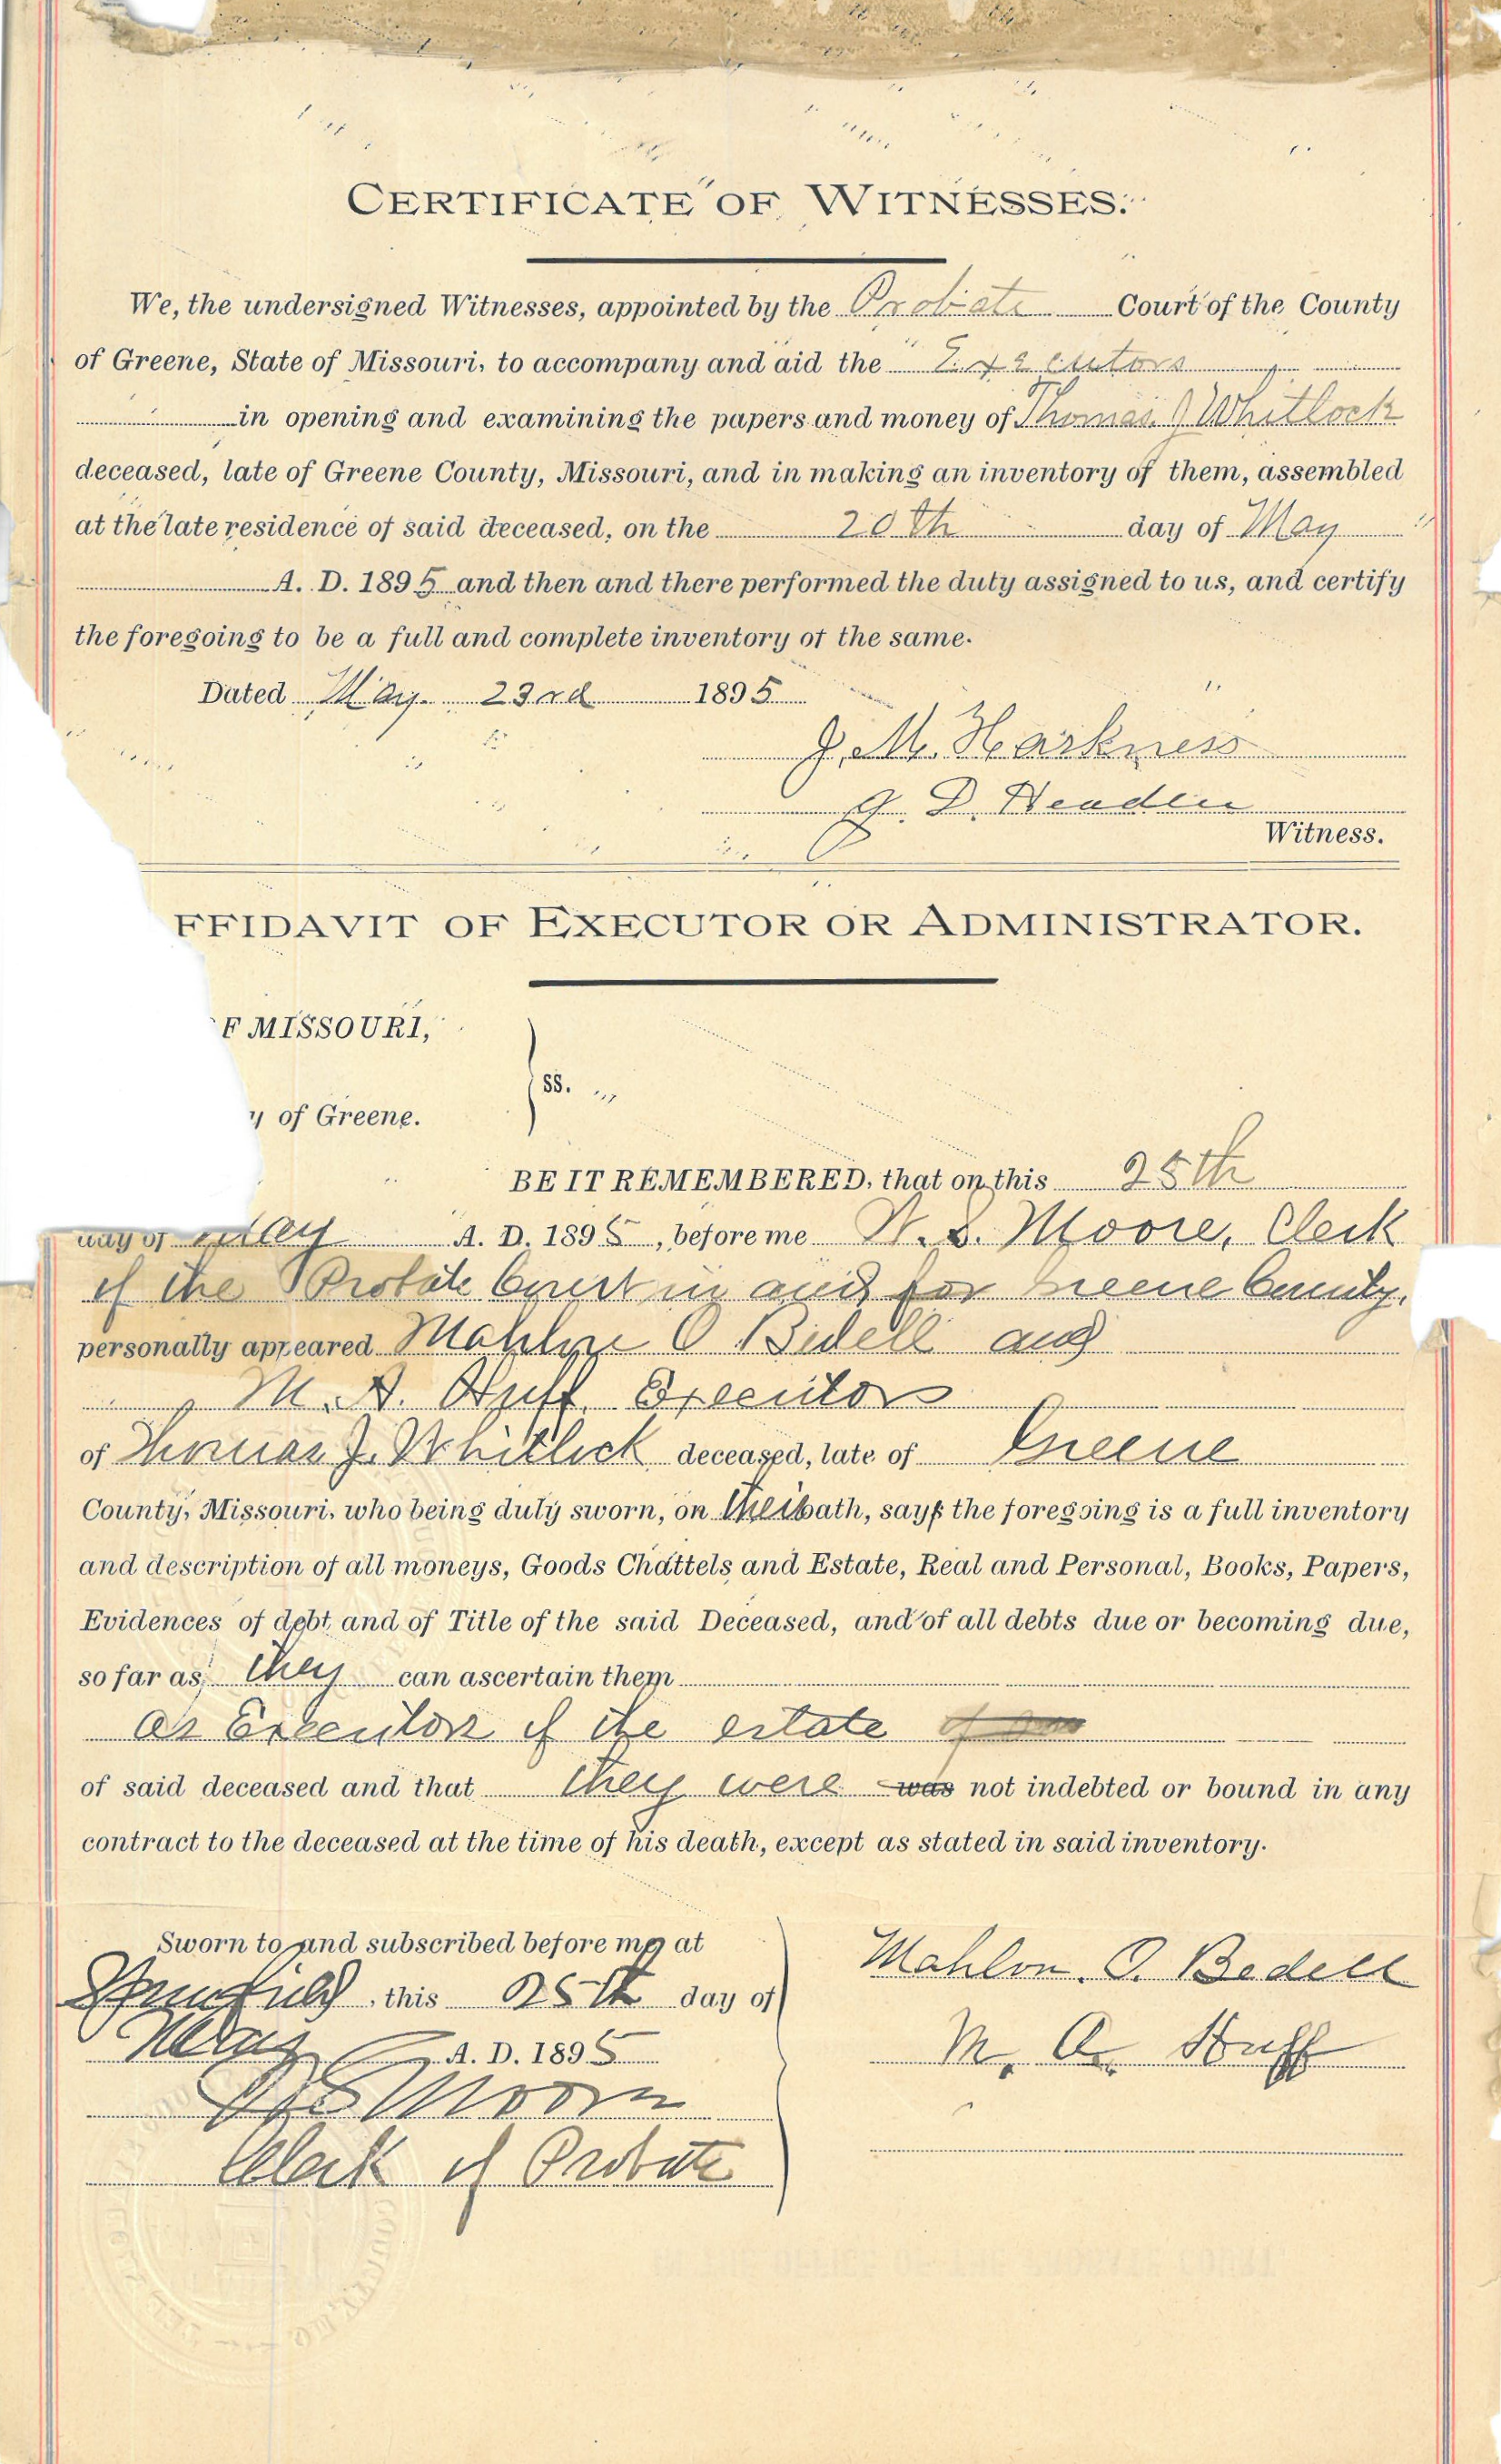 CERTIFICATE OF WITNESSES.
We, the undersigned Witnesses, appointed by the Probate Court of the County
of Greene, State of Missouri, to accompany and aid the Executors
in opening and examining the papers and money of Thomas J Whitlock
deceased, late of Greene County, Missouri, and in making an inventory of them, assembled
at the late residence of said deceased, on the 20th day of May
A. D. 1895 and then and there performed the duty assigned to us, and certify
the foregoing to be a full and complete inventory of the same.
Dated May 23rd 1895
J. M. Harkness
J. D. Headlee
Witness.
FFIDAVIT OF EXECUTOR OR ADMINISTRATOR.
F MISSOURI,
ss.
y of Greene.
BE IT REMEMBERED, that on this 25th
day of May A. D. 1895, before me W. S. Moore, Clerk
of the Probate Court in and for Greene County,
personally appeared Mahlon O Bedell and
M. A. Huff, Executors
of Thomas J. Whitlock deceased, late of Greene
County, Missouri, who being duly sworn, on their oath, say the foregoing is a full inventory
and description of all moneys, Goods Chattels and Estate, Real and Personal, Books, Papers,
Evidences of debt and of Title of the said Deceased, and of all debts due or becoming due,
so far as they can ascertain them
as Executors of the estate
of said deceased and that they were was not indebted or bound in any
contract to the deceased at the time of his death, except as stated in said inventory.
Sworn to and subscribed before me at
Springfield, this 25th day of
May A. D. 1895
W S Moore
Clerk of Probate
Mahlon. O. Bedell
M. A. Huff